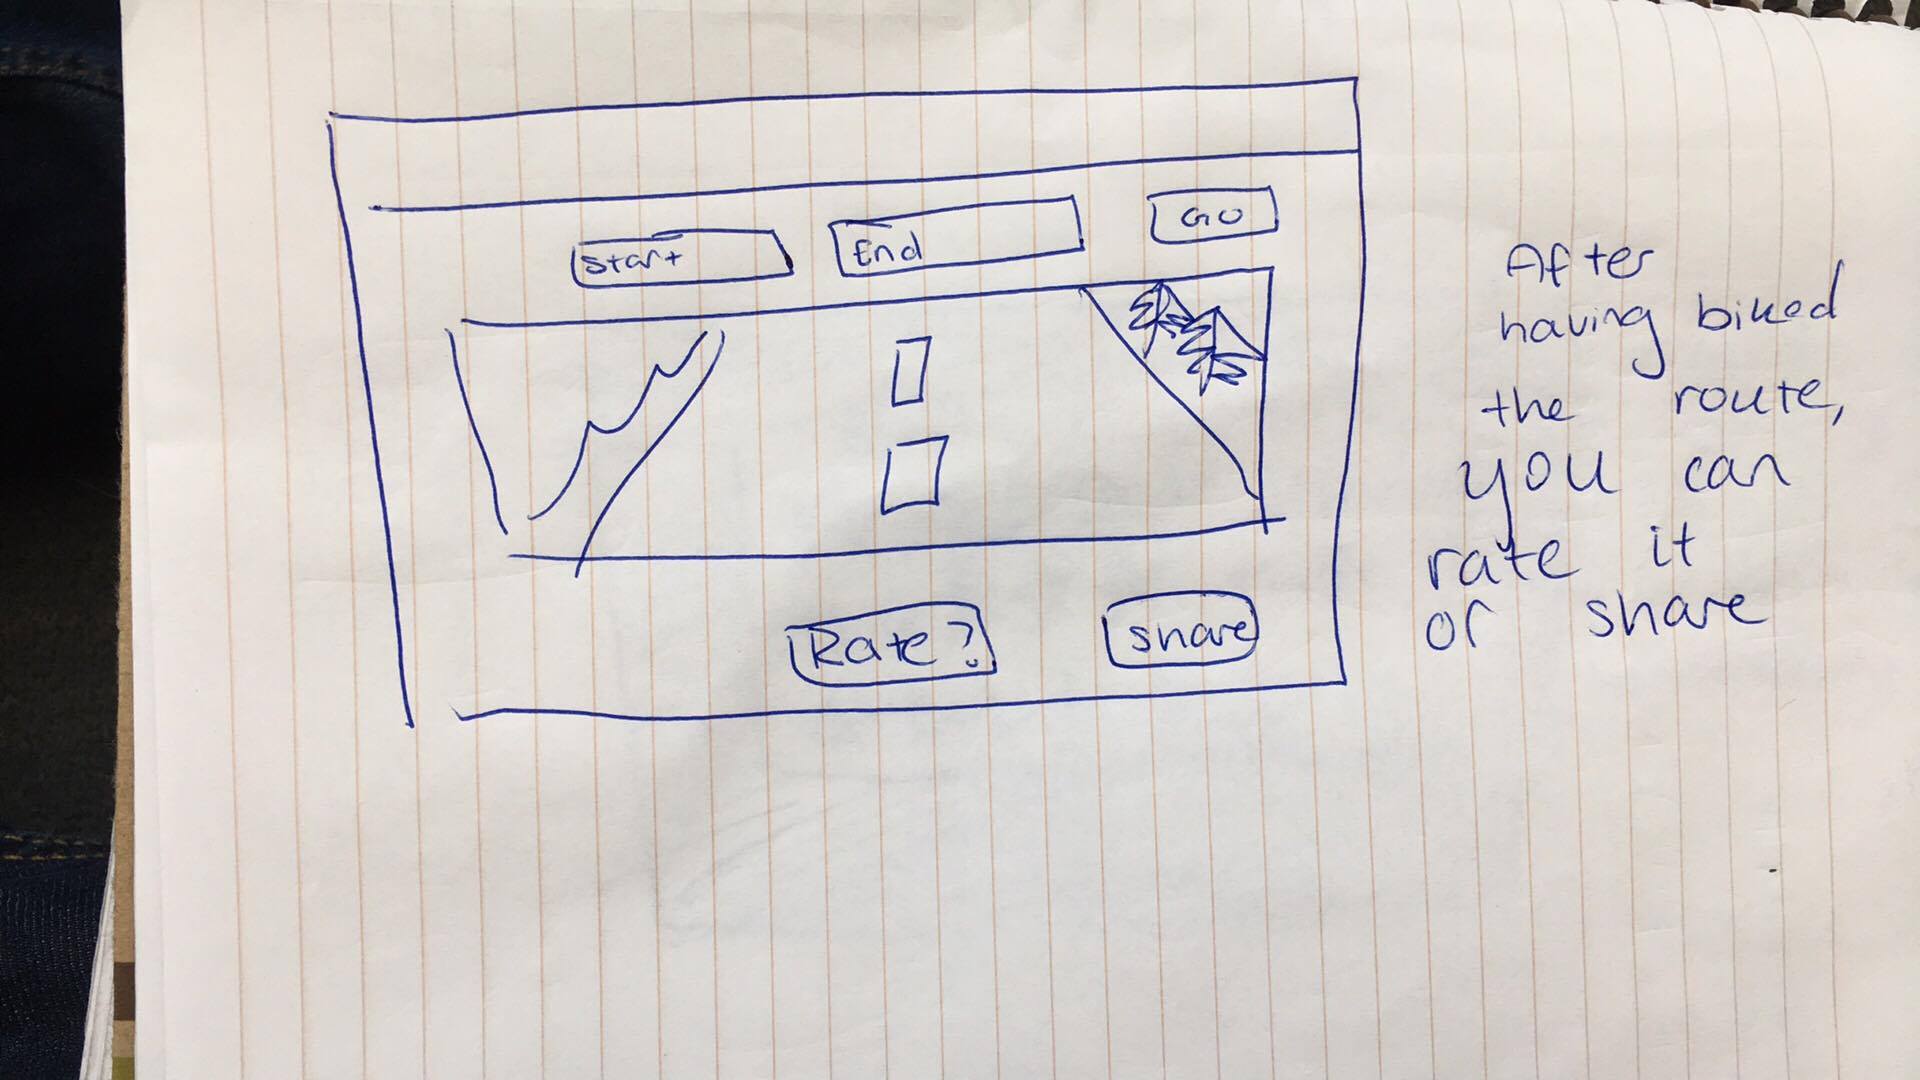 Start
End
GO
Rate?
Share
After
having biked
the route,
you can
rate it
or share